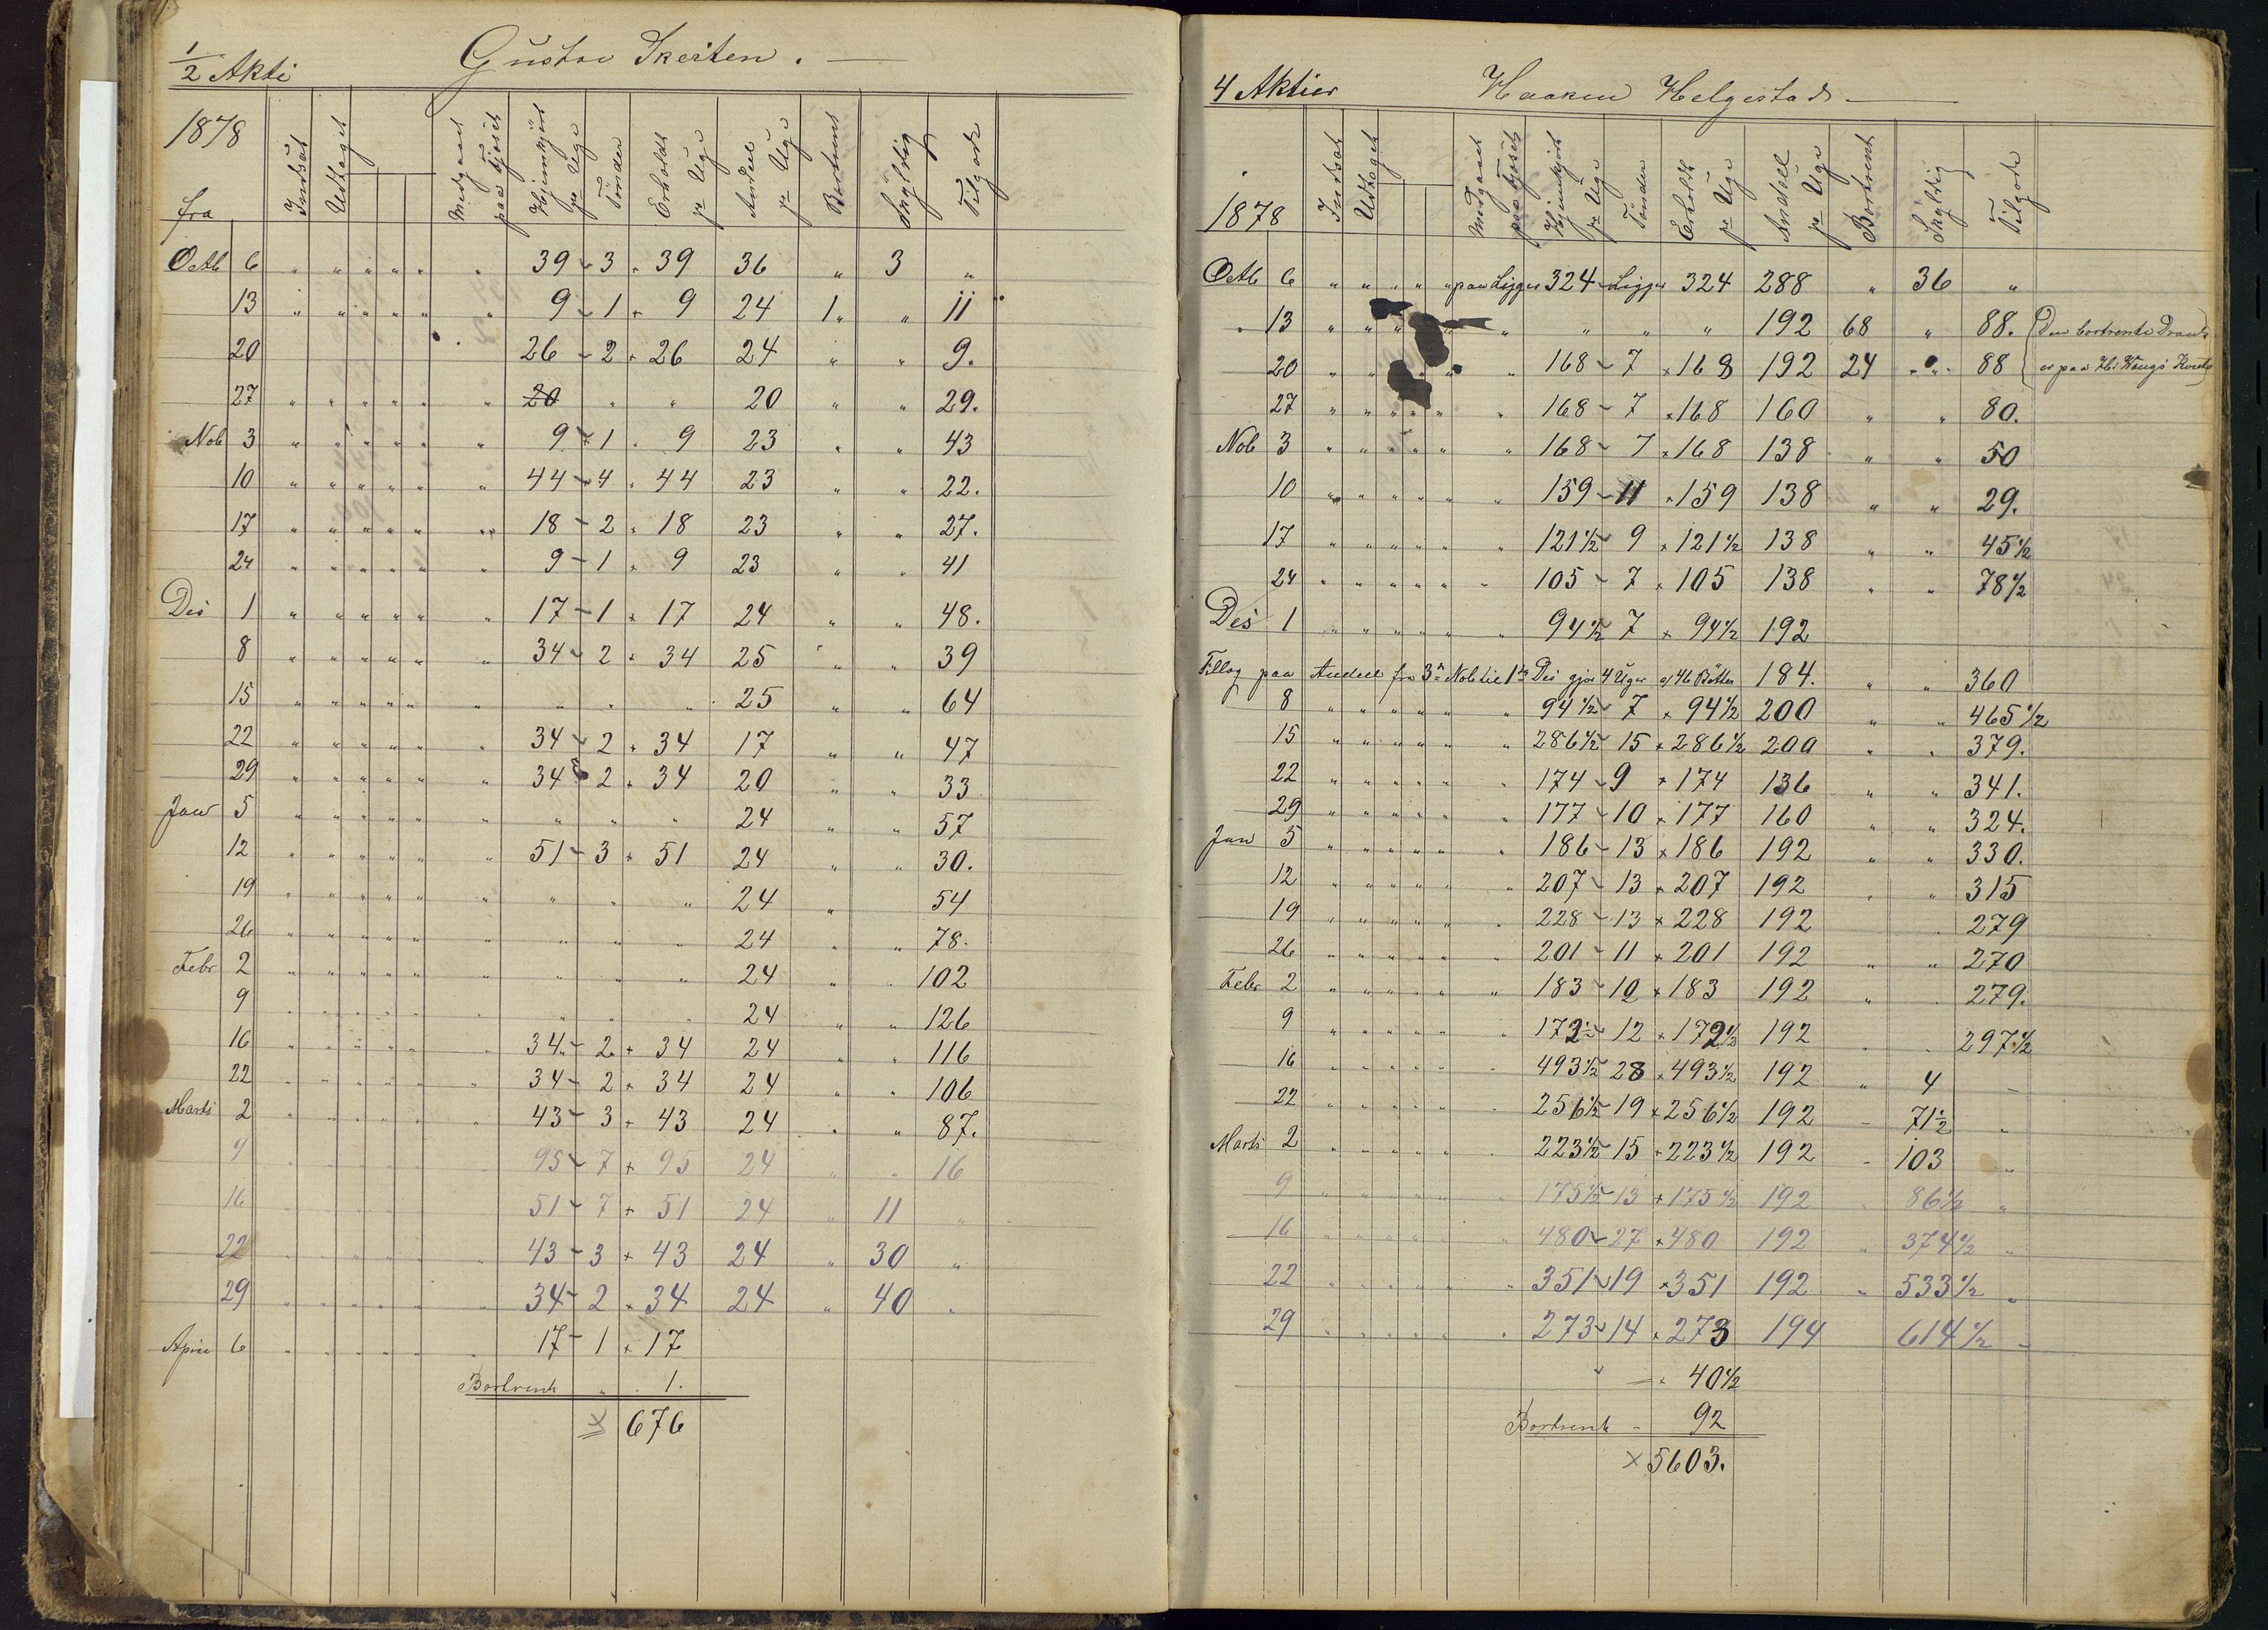 1/2 Akti Gustav Skeiten. —
1878
fra Indsat Udtaget Medgaaet paa Kjöset Hjemkjört pr Uge Tönder Erholdt pr Uge Andeel pr Uge Bortrent Skyldig Tilgode
Octb 6 " " " " " " 39 - 3 " 39 36 " 3 "
13 " " " " " " 9 - 1 " 9 24 1 " " 11
20 26 - 2 " 26 24 " " 9.
27 " " " " " " 20 " " 20 " " 29.
Nob 3 " " " " " " 9 - 1 " 9 23 " " 43
10 " " " " " " 44 - 4 " 44 23 " " 22.
17 " " " " " " 18 - 2 " 18 23 " " 27.
24 " " " " " " 9 - 1 " 9 23 " " 41
Des 1 " " " " " " 17 - 1 x 17 24 " " 48.
8 " " " " " " 34 - 2 " 34 25 " " 39
15 " " " " " " " " " 25 " " 64
22 " " " " " " 34 - 2 " 34 17 " " 47
29 " " " " " " 34 2 " 34 20 " " 33
Jan 5 " " " " " " " " " 24 " " 57
12 " " " " " " 51 - 3 x 51 24 " " 30.
19 " " " " " " " " " 24 " 54
26 " " " " " " " " " 24 " " 78.
Febr 2 " " " " " " " " " 24 " " 102
9 " " " " " " " " " 24 " " 126
16 " " " " " " 34 - 2 x 34 24 " " 116
22 " " " " " " 34 - 2 x 34 24 " " 106
Marts 2 " " " " " " 43 - 3 x 43 24 " " 87.
9 " " " " " " 95 - 7 x 95 24 " " 16
16 " " " " " " 51 - 7 x 51 24 " 11 "
22 " " " " " " 43 - 3 x 43 24 " 30 "
29 " " " " " " 34 - 2 x 34 24 " 40 "
April 6 " " " " " " 17 - 1 x 17
Bortrent " 1.
x 676
4 Aktier Haaken Helgestad —
1878 Indsat Udtaget Medgaaet paa Kjöset Hjemkjört pr Uge Tönder Erholdt pr Uge Andeel pr Uge Bortrent Skyldig Tilgode
Octb 6 " " " " " paa Ligger 324 - Ligger 324 288 " 36 "
13 " " " " " " " " 192 68 " 88. Den bortrente Drank
20 " " " " " " 168 - 7 x 168 192 24 " 88 er paa
27 " " " " " " 168 - 7 x 168 160 " " 80.
Nob 3 " " " " " " 168 - 7 x 168 138 " " 50
10 " " " " " " 159 - 11 " 159 138 " " 29.
17 " " " " " " 121 1/2 9 x 121 1/2 138 " " 45 1/2
24 " " " " " " 105 - 7 x 105 138 " " 78 1/2
Des 1 " " " " " " 94 1/2 7 x 94 1/2 192
Tillag paa Andeel fra 3die Nob til 1ste Des gjör 4 Uger af 46 Bötter 184. " " 360
8 " " " " " " 94 1/2 7 x 94 1/2 200 " " 465 1/2
15 " " " " " " 286 1/2 15 x 286 1/2 200 " " 379.
22 " " " " " " 174 - 9 x 174 136 " " 341.
29 " " " " " " 177 - 10 x 177 160 " " 324.
Jan 5 " " " " " " 186 - 13 x 186 192 " " 330.
12 " " " " " " 207 - 13 x 207 192 " " 315
19 " " " " " " 228 - 13 x 228 192 " 279
26 " " " " " " 201 - 11 x 201 192 " " 270
Febr 2 " " " " " " 183 - 10 x 183 192 " " 279.
9 " " " " " " 173 1/2 12 x 173 1/2 192 " " 297 1/2
16 " " " " " " 493 1/2 28 x 493 1/2 192 " 4 -
22 " " " " " " 256 1/2 19 x 256 1/2 192 - 71 1/2 "
Marts 2 " " " " " " 223 1/2 15 x 223 1/2 192 - 103 "
9 " " " " " " 175 1/2 13 x 175 1/2 192 " 86 1/2 "
16 " " " " " " 480 - 27 x 480 192 " 374 1/2 "
22 " " " " " " 351 - 19 x 351 192 " 533 1/2 "
29 " " " " " " 273 - 14 x 273 194 614 1/2 -
" — x 40 1/2
Bortrent - 92
x 5603.